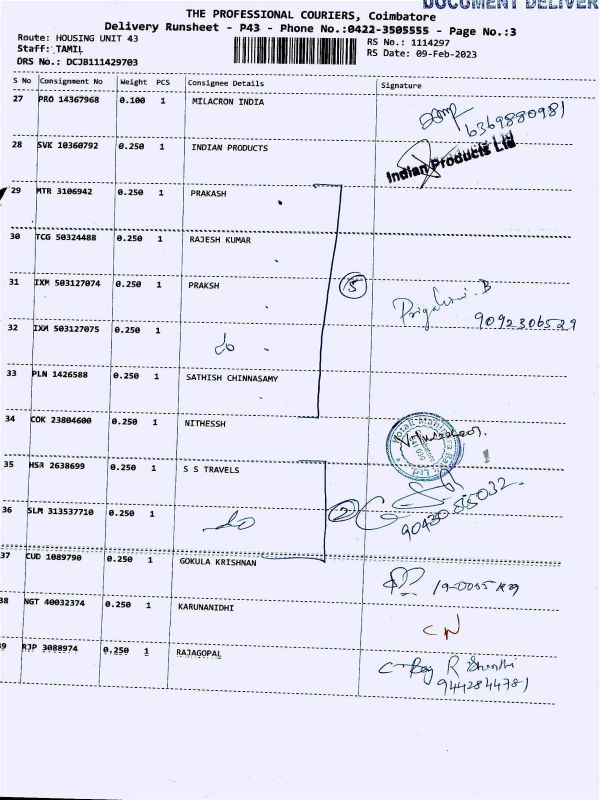 DOCUMENT DELIVER
THE PROFESSIONAL COURIERS, Coimbatore
Delivery Runsheet - P43 - Phone No.:0422-3505555 - Page No.:3
Route: HOUSING UNIT 43 RS No.: 1114297
Staff: TAMIL RS Date: 09-Feb-2023
DRS No.: DCJB111429703
S No Consignment No Weight PCS Consignee Details Signature
27 PRO 14367968 0.100 1 MILACRON INDIA
6369880981
28 SVK 10360792 0.250 1 INDIAN PRODUCTS
Indian Products Ltd
29 MTR 3106942 0.250 1 PRAKASH
30 TCG 50324488 0.250 1 RAJESH KUMAR
31 IXM 503127074 0.250 1 PRAKSH
5
9092306529
32 IXM 503127075 0.250 1
do
33 PLN 1426588 0.250 1 SATHISH CHINNASAMY
34 COK 23804600 0.250 1 NITHESSH
35 HSR 2638699 0.250 1 S S TRAVELS
36 SLM 313537710 0.250 1
do 2
37 CUD 1089790 0.250 1 GOKULA KRISHNAN
38 NGT 40032374 0.250 1 KARUNANIDHI
CN
39 RJP 3088974 0.250 1 RAJAGOPAL
9442844781